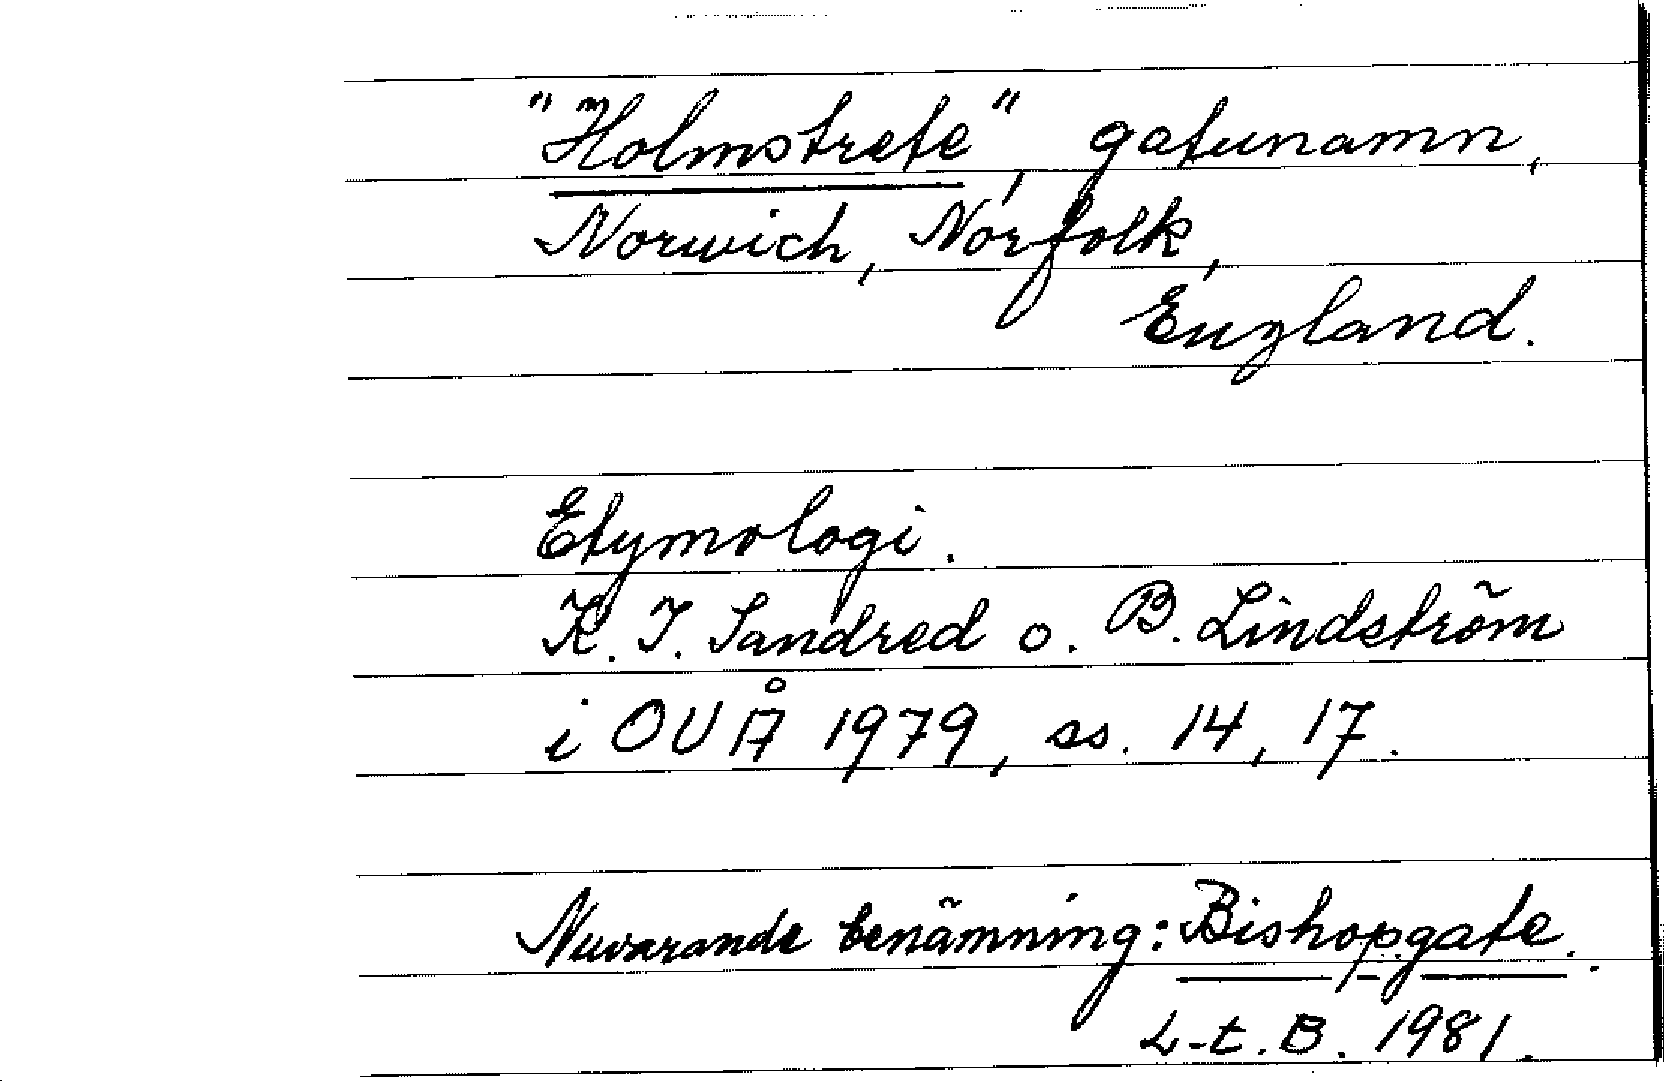 "Holmstrete", gatunamn,
Norwich, Norfolk,
England.
Etymologi.
K. I. Sandred o. B. Lindström
i OUÅ 1979, ss. 14, 17.
Nuvarande benämning: Bishopgate.
L-t. B. 1981.